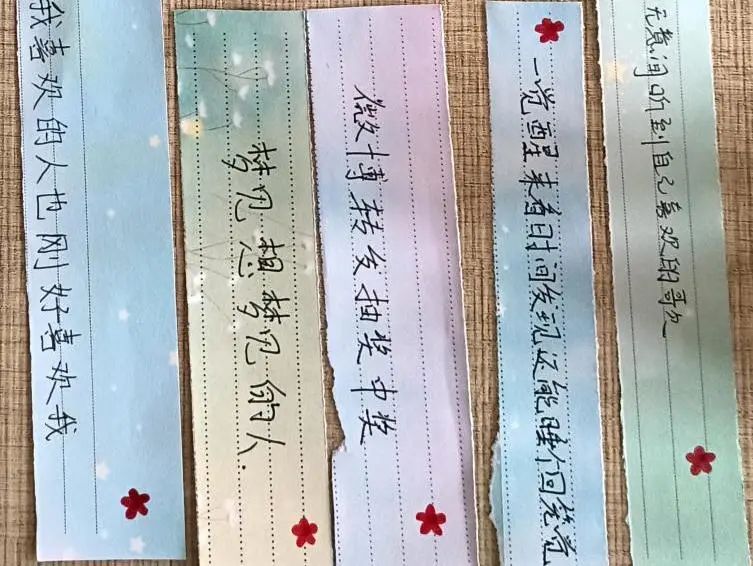 我喜欢的人也刚好喜欢我
梦见想梦见的人.
微博转发抽奖中奖
一觉醒来看时间发现还能睡个回笼觉
无意间听到自己喜欢的歌